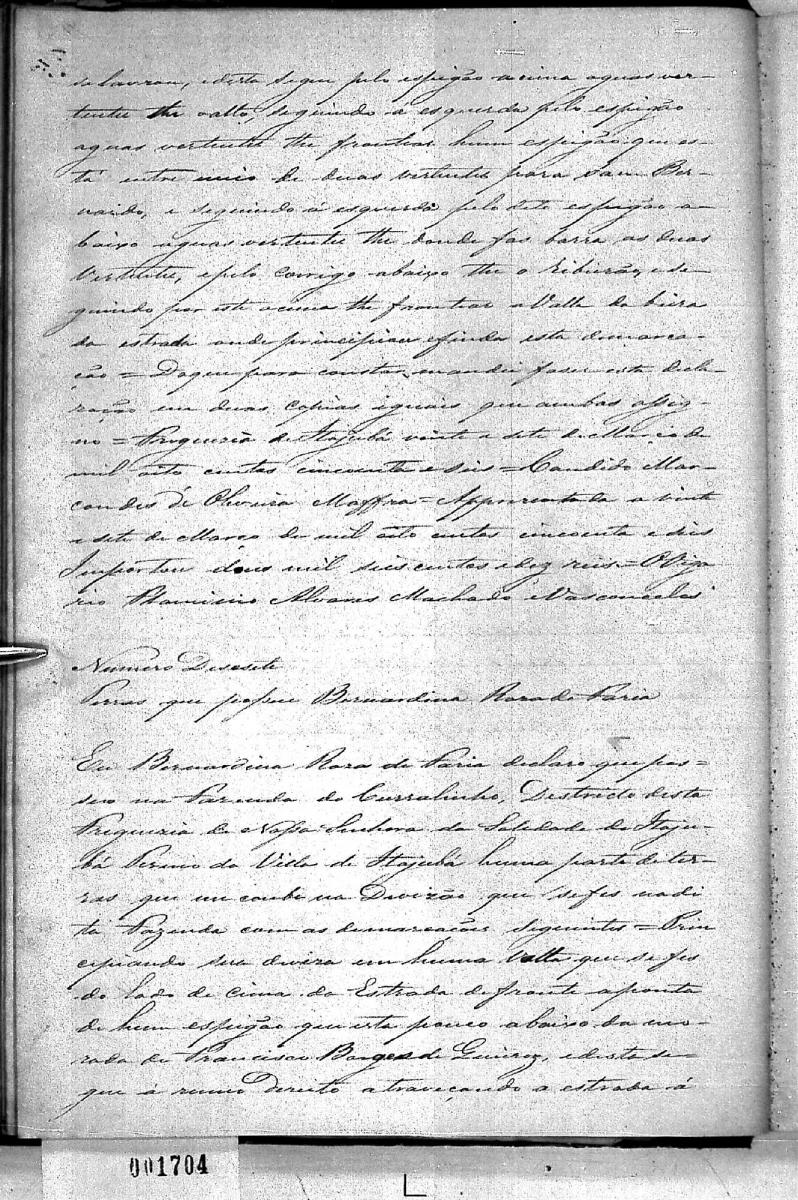 se lavrou, e desta segue pelo espigão acima aguas ver-
tentes the o alto, seguindo á esquerda pelo espigão
aguas vertentes the frontiar hum espigão que es-
tá entre meio de duas vertentes para Sam Ber-
nardo, e seguindo á esquerda pelo dito espigão a-
baixo aguas vertentes the donde fas barra as duas
Vertentes, e pelo corrigo abaixo the o Ribeirão, e se-
guindo por este acima the frontiar a Valla da beira
da estrada onde principiou e finda esta demarca-
ção = Do que para constar mandei faser esta decla-
ração em duas copias iguais que ambas assig-
no = Freguezia de Itajubá vinte e sete de Março de
mil oito centos cincoenta e seis = Candido Mar-
condes de Oliveira Maffra = Apprezentada a vinte
e sete de Março de mil oito centos cincoenta e seis
Importou dous mil seis centos e dez reis = O Viga
rio Alvares Machado e Vasconcelos
Numero Desesete
Terras que possue Bernardina Roza de Faria
Eu Bernardina Roza de Faria declaro que pos-
suo na Fazenda do Curralinho, Destricto desta
Freguezia de Nossa Senhora da Soledade de Itaju-
bá Termo da Villa de Itajubá huma parte de ter-
ras que me coube na Divizão que se fes na di
ta Fazenda com as demarcações seguintes = Prin
cipiando sua diviza em huma Valla que se fes
do lado de cima da Estrada defronte a ponta
de hum espigão que esta pouco abaixo da mo-
rada de Francisco Borges de Queiroz, e desta se-
gue á rumo Direito atraveçando a estrada á
001704